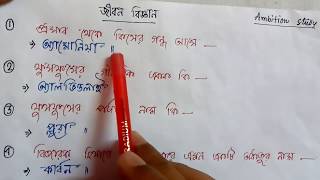 জীবন বিজ্ঞান
Ambition study
① প্রস্রাব থেকে কিসের গন্ধ আসে —
⇒ অ্যামোনিয়া "
② ফুসফুসের একক কি —
⇒ অ্যালভিওলাই "
③ ফুসফুসের নাম কি —
⇒ প্লুরা "
④ এমন একটি নাম —
⇒ কার্বন "